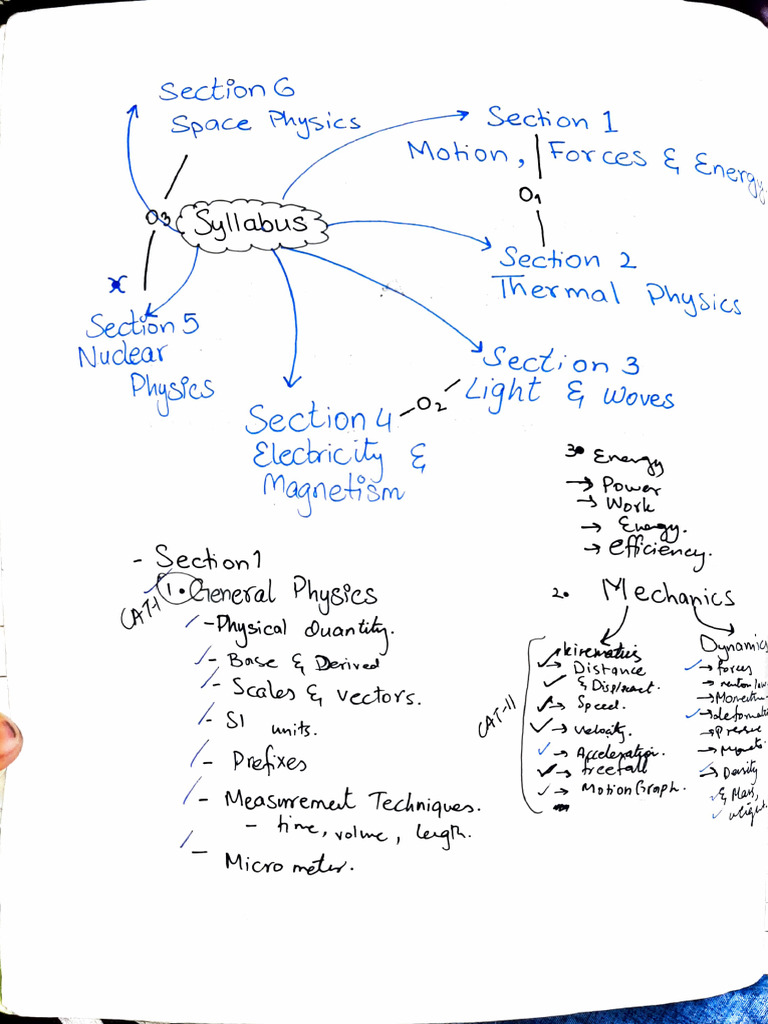 Section 6
Space Physics
Section 1
Motion, Forces & Energy
O1
O3
Syllabus
Section 2
Thermal Physics
Section 5
Nuclear
Physics
Section 3
Light & Waves
O2
Section 4
Electricity &
Magnetism
3. Energy
→ Power
→ Work
→ Energy.
→ Efficiency.
- Section 1
CAT-1
1. General Physics
- Physical Quantity.
- Base & Derived
- Scales & vectors.
- SI units.
- Prefixes
- Measurement Techniques.
- time, volume, length.
- Micro meter.
2. Mechanics
CAT-11
kinematics
→ Distance
& Displacet.
→ Speed.
→ velocity.
→ Acceleration.
→ freefall
→ Motion Graph.
Dynamics
→ forces
→ newton law
→ Momentum
→ deformati
→ Pressure
→ Density
& Mass,
weight